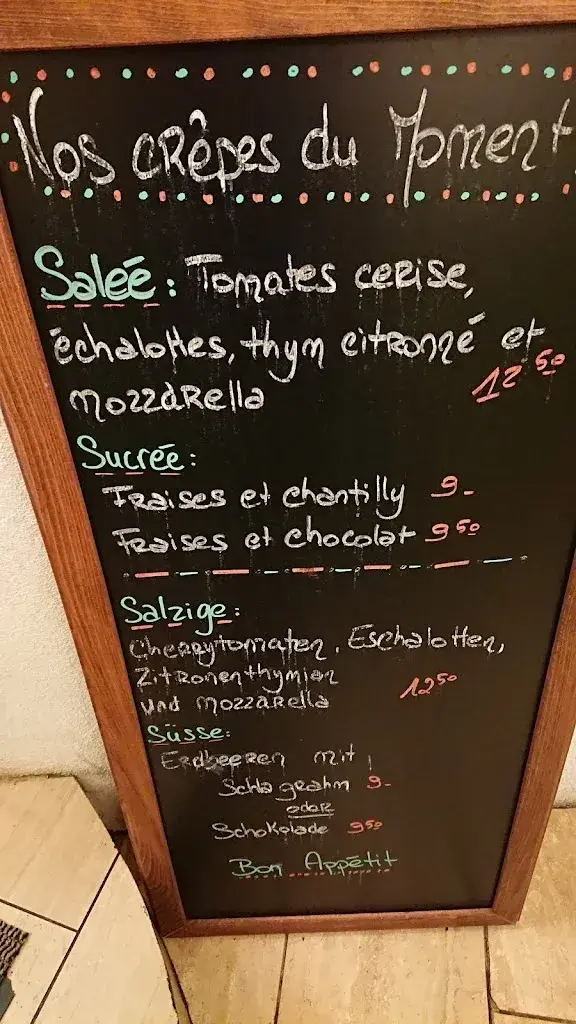 Nos crêpes du Moment
Salée: Tomates cerise,
échalottes, thym citronné et
mozzarella 12 50
Sucrée:
Fraises et chantilly 9.-
Fraises et chocolat 9 50
Salzige:
Cherrytomaten, Eschalotten,
Zitronenthymian
und mozzarella 12 50
Süsse:
Erdbeeren mit
Schlagrahm 9.-
oder
Schokolade 9 50
Bon Appétit